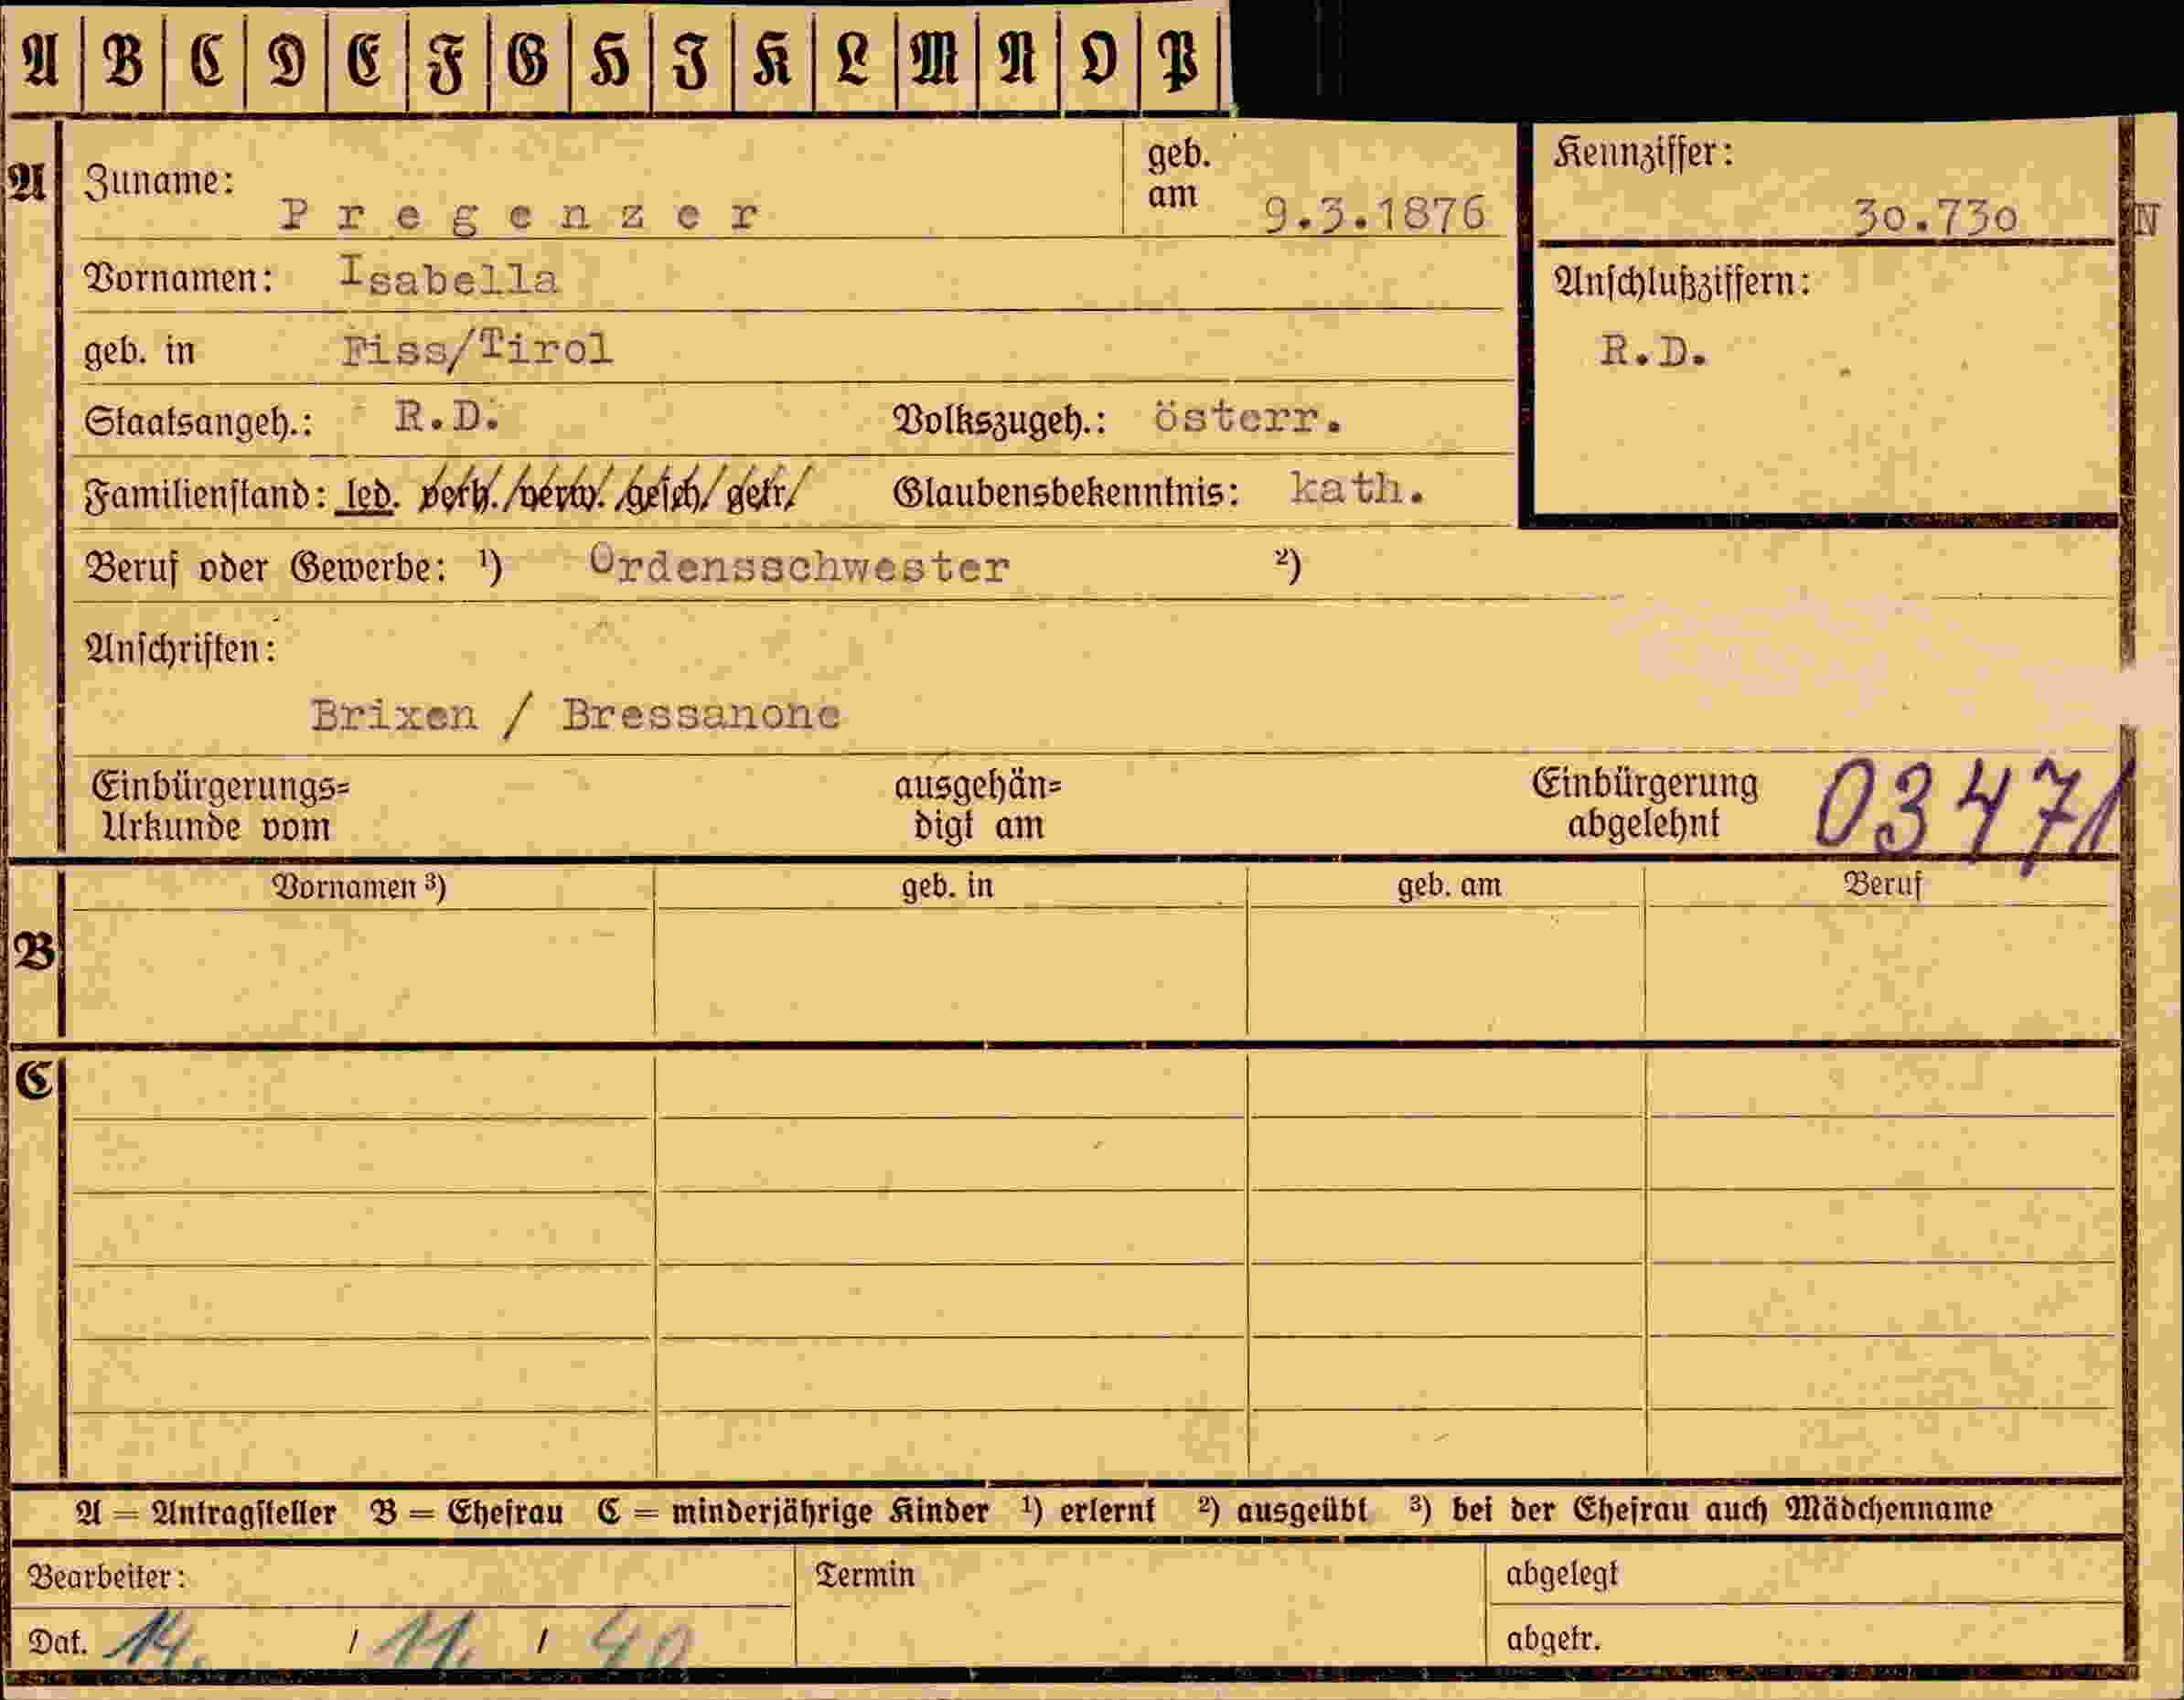 A B C D E F G H I K L M N O P
A Zuname: Pregenzer geb. am 9.3.1876
Kennziffer: 30.730 N
Vornamen: Isabella
Anschlußziffern:
geb. in Fiss/Tirol
R.D.
Staatsangeh.: R.D. Volkszugeh.: österr.
Familienstand: led. verh./verw./gesch/getr/ Glaubensbekenntnis: kath.
Beruf oder Gewerbe: ¹) Ordensschwester ²)
Anschriften:
Brixen / Bressanone
Einbürgerungs= ausgehän= Einbürgerung 03471
Urkunde vom digt am abgelehnt
Vornamen ³) geb. in geb. am Beruf
B
C
A = Antragsteller B = Ehefrau C = minderjährige Kinder ¹) erlernt ²) ausgeübt ³) bei der Ehefrau auch Mädchenname
Bearbeiter: Termin abgelegt
Dat. 14. / 11. / 40 abgetr.